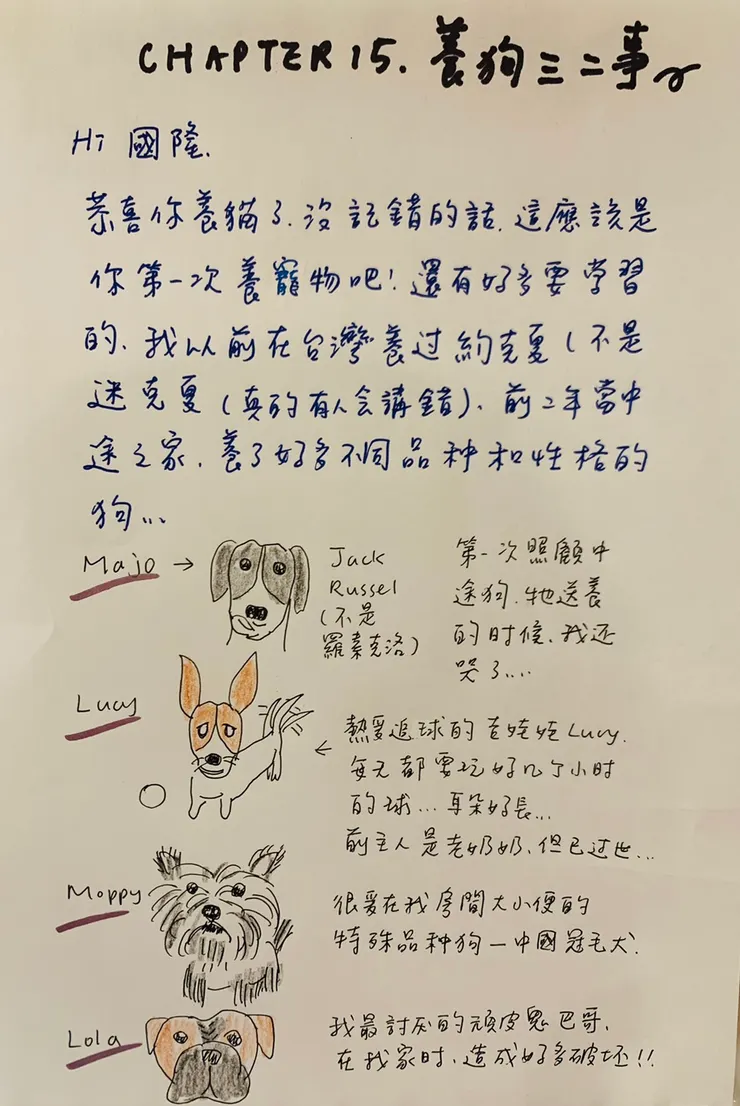 CHAPTER 15. 養狗三二事
Hi 國隆.
恭喜你養貓了.沒記錯的話.這應該是
你第一次養寵物吧!還有好多要学習
的.我以前在台灣養过約克夏(不是
迷克夏(真的有人会講錯).前二年當中
途之家.養了好多不同品种和性格的
狗...
Majo →
Jack
Russel
(不是
羅素克洛)
第一次照顧中
途狗.牠送養
的时候.我还
哭了....
Lucy
← 熱愛追球的吉娃娃Lucy.
每天都要玩好几个小时
的球...耳朵好長...
前主人是老奶奶.但已过世...
Moppy
很爱在我房間大小便的
特殊品种狗一中國冠毛犬.
Lola
我最討厌的頑皮鬼巴哥.
在我家时.造成好多破坏!!